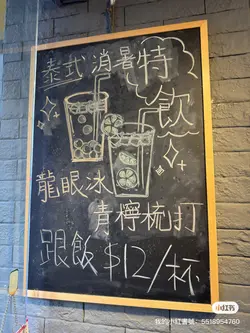 泰式消暑特
飲
龍眼冰
青檸梳打
跟飯 $12/杯
小红书
我的小紅書號：5518954760